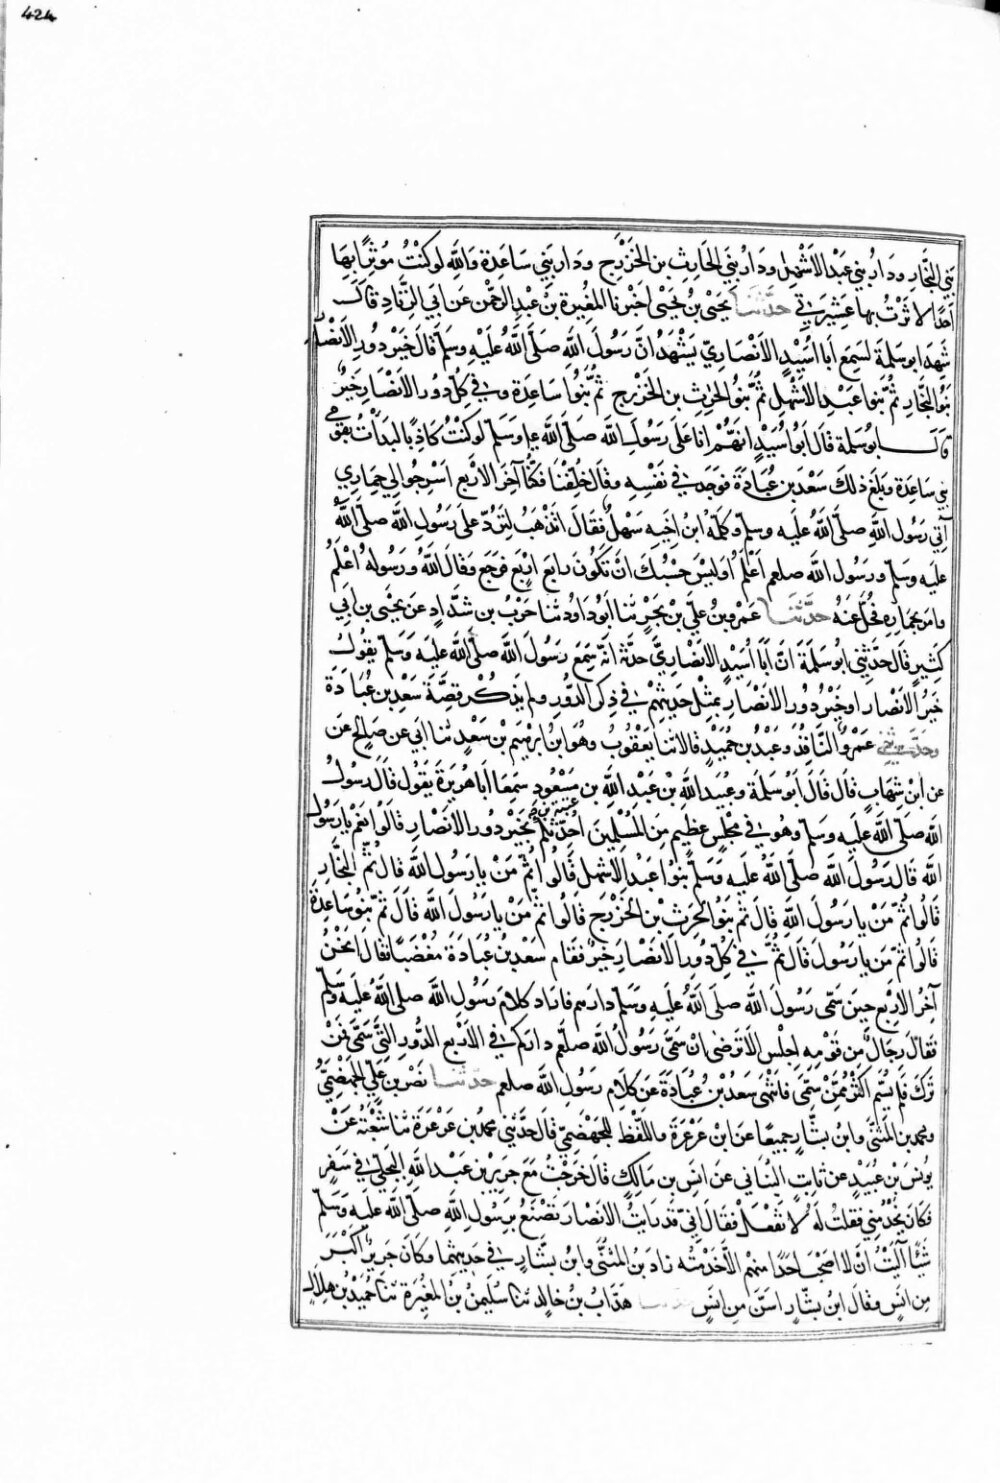 424
بَنِي النَّجَّارِ ودَارُ بني عَبْدِ الأَشْهَلِ ودَارُ بَنِي الحَارِثِ بنِ الخَزْرَجِ ودار بَنِي سَاعِدة وَاللَّهِ لو كنْتُ مُوثِرًا بِهَا
أحدًا لاثَرْتُ بها عَشِيرَتِي حَدَّثَنَا يَحْيَى بن يَحْيَى اخبرنا المغِيرة بن عَبْدِ الرحمٰن عَن أبي الزِّنَادِ قال
شَهِدَ ابو سَلمةَ لسَمِعَ أبَا أُسَيْدٍ الأنْصَارِيّ يَشْهَدُ انّ رَسُولَ اللَّهِ صَلَّى اللَّهُ عَلَيْهِ وسَلّم قالَ خَيْر دُورِ الأنْصَارِ
بَنُو النَّجَّارِ ثُمّ بَنُوا عبدِ الأشْهَلِ ثُمّ بَنُو الحٰرِثِ بن الخَزْرج ثُمّ بَنُوا سَاعِدَة وفي كُلّ دُورِ الأنْصَارِ خَيْرٌ
قالَ ابو سَلمة قَال أبُو أُسَيْدٍ اتهَمُ انَا عَلى رَسُولِ اللَّه صَلّى اللَّه عليه وسَلّم لو كنْتُ كاذِبًا لبدَأتُ بِقَوْمي
بني سَاعِدة وبَلَغ ذلكَ سَعْدَ بن عُبَادَةَ فوَجَدَ في نَفْسِهِ وقَال خُلِّفْنَا فكنّا آخرَ الأرْبعِ اسْرِجُوا لي حِمَارِي
آتِي رَسُولَ اللَّهِ صلّى اللَّهُ عليه وسلّم وكلّمهُ ابنُ اخِيهِ سَهْلٌ فقالَ اتَذهَبُ لتَرُدّ عَلى رَسُولِ اللَّهِ صلّى اللَّهُ
عليه وسلّم ورَسُولُ اللَّه صلعم اَعْلَمُ اَوَليْسَ حَسْبُكَ انْ تَكُونَ رابعَ ارْبَعٍ فرجَعَ وقَالَ اللَّهُ ورَسُولهُ اعْلَمُ
وامرَ بِحِمَارِهِ فحُلّ عَنهُ حَدَّثَنَا عَمْرو بنُ عَلي بن بَحْرٍ ثنا أبو داودَ ثنا حَرْبُ بن شدّادٍ عَن يحيى بن أبي
كثيرٍ قال حدّثني ابو سَلمةَ انّ أبَا أُسَيْدٍ الأنْصَارِيّ حدثه انّه سَمِعَ رَسُولَ اللَّهِ صلّى اللَّه عليه وسَلّم يقُولُ
خَيْرُ الأنْصَار او خَيْرُ دُورِ الأنْصَارِ بمِثْلِ حَدِيثِهِمْ في ذِكْرِ الدُّورِ ولم يذكُرْ قِصَّةَ سَعْدِ بن عُبَادَة
وحَدَّثَنِي عَمْرٌو النَّاقِدُ وعَبْدُ بن حُمَيْدٍ قالا ثنا يَعْقُوبُ وهُوَ ابن ابرٰهيم بن سَعْدٍ ثنا أبي عن صَالِحٍ عَن
عن ابن شِهَابٍ قالَ قَال أبُو سَلمةَ وعُبَيدُ اللَّهِ بن عَبْدِ اللَّهِ بن عتبة بن مَسْعُودٍ سَمِعَا أبَا هُرَيرَةَ يَقُول قالَ رَسُولُ
اللَّه صَلّى اللَّهُ عليه وسلّم وهُو في مجْلِسٍ عظِيمٍ مِنَ المُسْلِمِين أُحَدِّثُكُم بخَيْرِ دورِ الأنْصَارِ قالوا نعَمْ يارَسُولَ
اللَّه قَال رَسُولُ اللَّه صَلّى اللَّهُ عليه وَسَلّم بَنُوا عَبْدِ الأشهل قَالُوا ثُمّ مَنْ يا رَسُولَ اللَّه قَالَ ثُمّ النَّجَّارِ
قَالُوا ثُمّ مَنْ يا رَسُولَ اللَّهِ قالَ ثُمّ بَنُو الحٰرثِ بن الخَزْرَج قَالُوا ثُمّ مَنْ يا رَسُولَ اللَّه قَالَ ثُمّ بَنُو سَاعِدة
قَالُوا ثُمّ مَن يا رَسُولَ قَال ثُمّ في كُلّ دُورِ الأنْصَارِ خَيْرٌ فقَام سَعْدُ بن عُبَادَةَ مُغْضَبًا فقَالَ انَحْنُ
آخرُ الأرْبعِ حِينَ سَمّى رَسُولُ اللَّه صَلّى اللَّهُ عَلَيه وسَلّم دارَهم فارَاد كلامَ رَسُولِ اللَّه صلى اللَّهُ عليه وسَلّم
فقَالَ رِجَالٌ من قَوْمِهِ اجلس الا تَرضى ان سَمّى رَسُولُ اللَّه صلعم دارَكم في الأرْبع الدُّورِ الّتي سَمّى فمَنْ
تَرَكَ فلم يُسَمّ اكثرُ مِمَّنْ سَمّى فانتهَى سَعدُ بْنُ عُبَادَةَ عَن كلَامِ رسُولِ اللَّه صلعم حَدَّثَنَا نَصْرُ بن عَلِيٍّ الجَهْضَمِيّ
ومحمد بن المثنّى وابن بشّار جميعًا عَن ابن عَرْعَرَة واللَّفْظ للجَهْضَمِيّ قال حدّثني محمد بن عَرْعَرَة ثنا شُعْبَة عَنْ
يُونسَ بن عُبَيْدٍ عن ثابتٍ البُنَاني عن انَسِ بن مَالِكٍ قالَ خَرَجْتُ مَعَ جرير بن عَبد اللَّهِ البَجَلِيّ في سَفَرٍ
فكانَ يخْدُمُني فقلتُ لَهُ لا تَفْعَلْ فقالَ انّي قَد رأيتُ الأنْصَارَ تصْنَعُ برَسُولِ اللَّهِ صَلّى اللَّه عليه وَسَلّم
شَيْئًا آلَيْتُ انْ لا اصْحَبَ احَدًا منهم الّا خَدَمْتُه زادَ بن المثنّى وابن بشّارٍ في حَدِيثِهما وكانَ جَرِيرٌ اكْبَرَ
من انَسٍ وقالَ ابن بشّارٍ اسَنَّ من انَسٍ حدثنا هَدّابُ بن خَالد ثنا سُلَيمٰنُ بنُ المُغِيرَة ثنا حُمَيْدُ بن هِلَالٍ